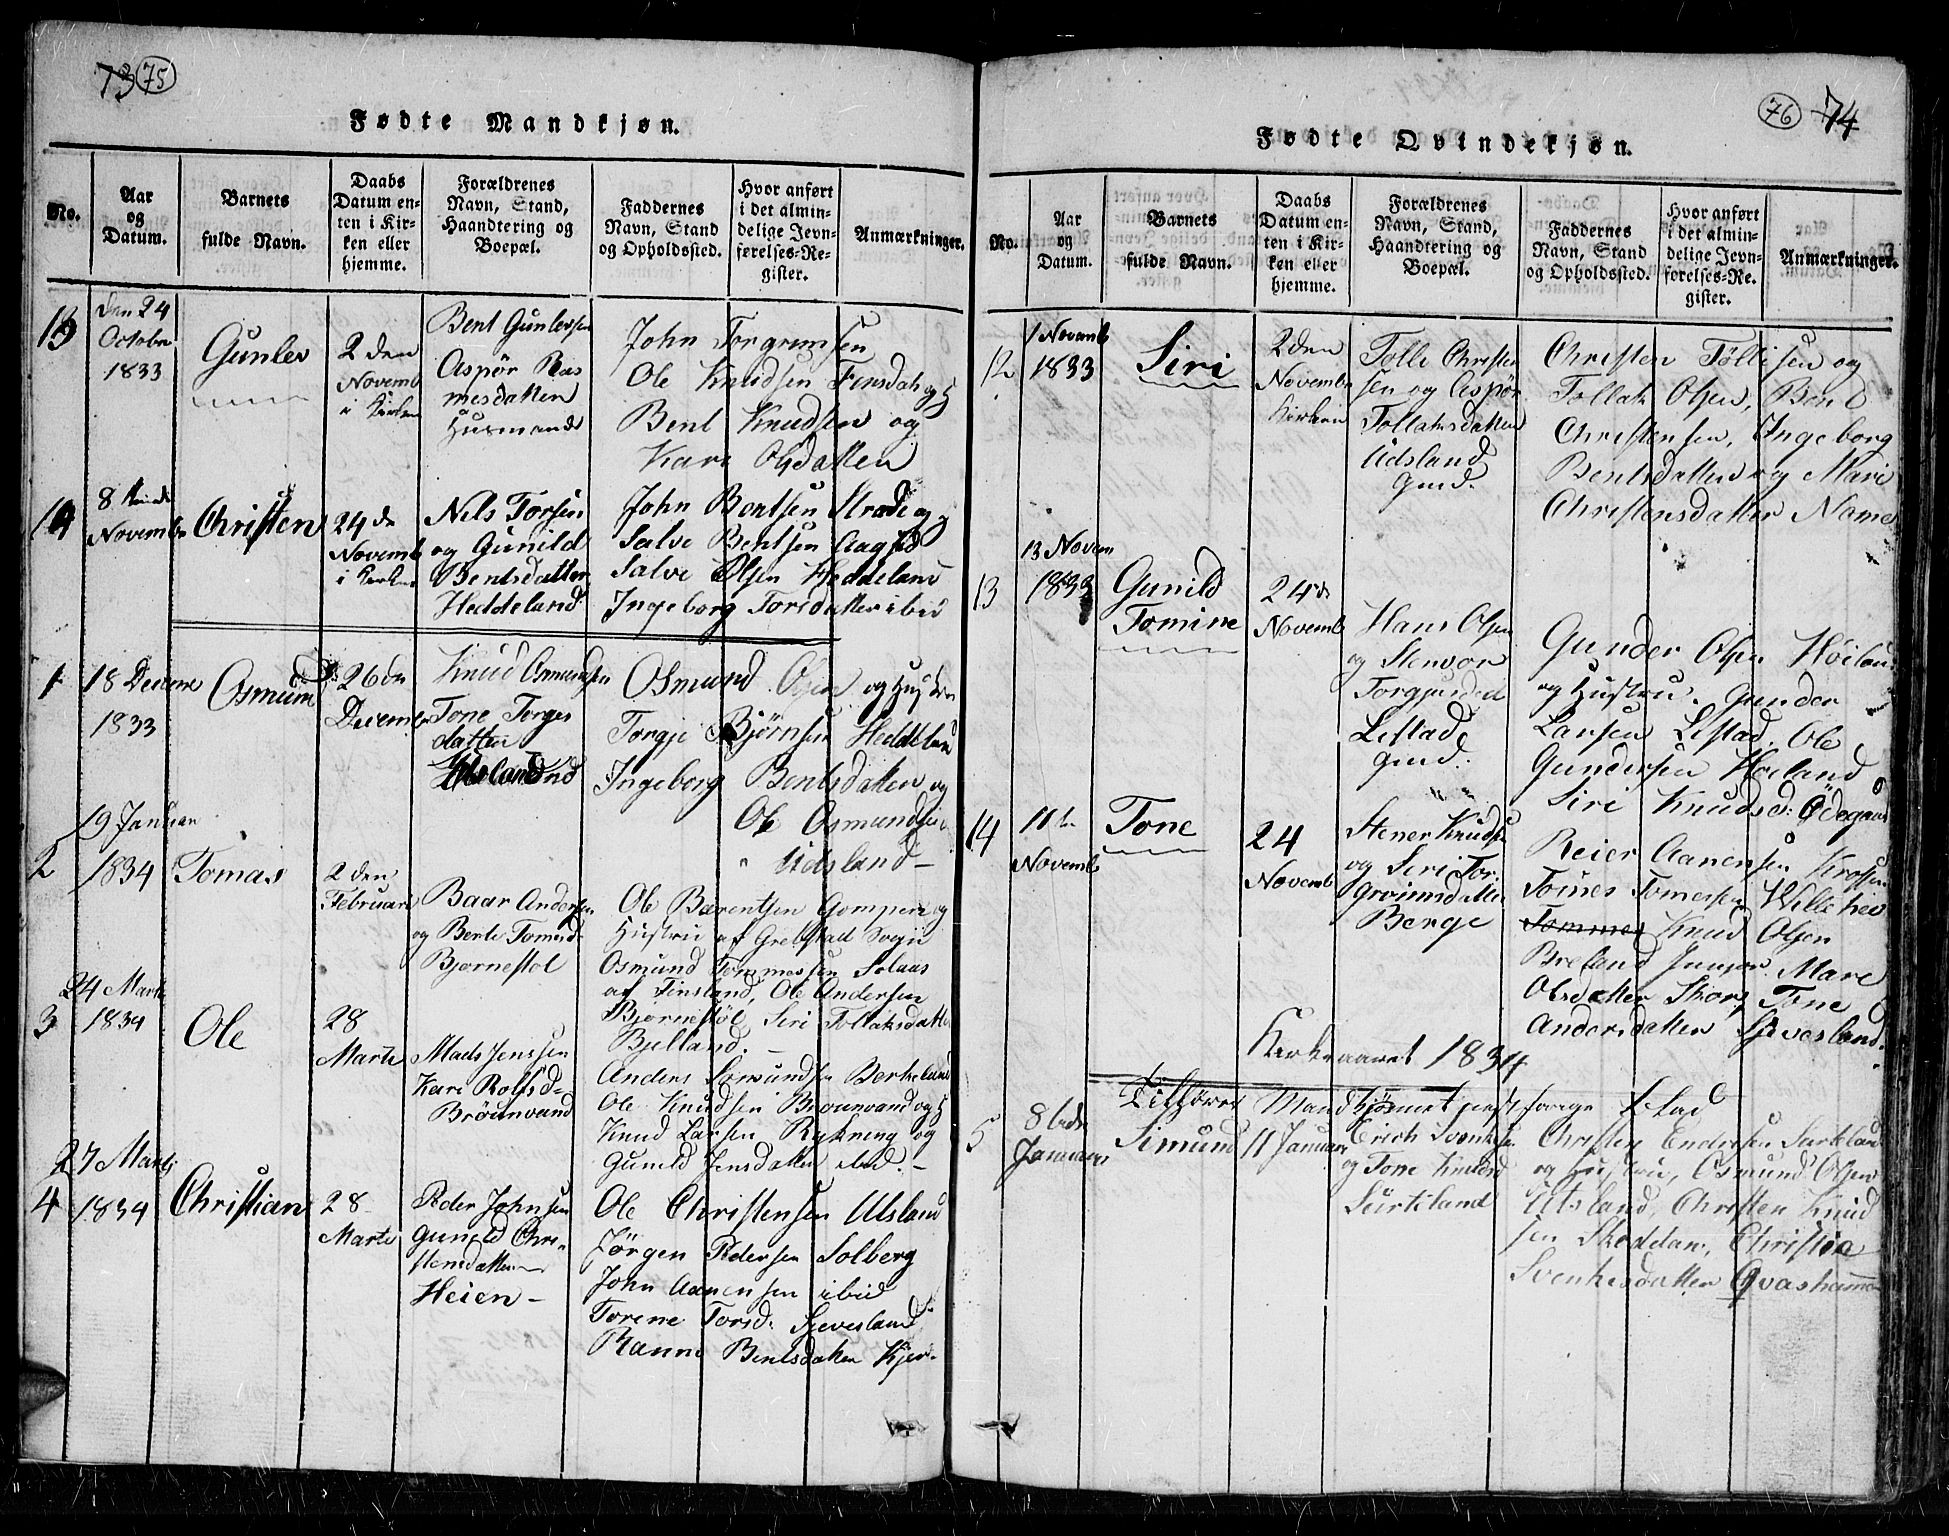 73 75
Fødte Mandkjøn.
No.
Aar og Datum.
Barnets fulde Navn.
Daabs Datum enten i Kirken eller hjemme.
Forældrenes Navn, Stand, Haandtering og Boepæl.
Faddernes Navn, Stand og Opholdssted.
Hvor anført i det almindelige Jevnførelses-Register.
Anmærkninger.
13
den 24
Octobr
1833
Gunlev
2 den
Novemb
i Kirken
Bent Gunlevsen
Aspør Ras
mesdatten
Husmand
John Torgrimsen
Ole Knudsen Finsdal og
Bent Knudsen og
Kari Olsdatten
14
8
Novemb
Christen
24 de
Novemb
i Kirken
Nils Torsen
og Gunild
Bentsdatter
Heddeland
John Bentsen Stræde og
Salve Bentsen Aagsd
Salve Olsen Heddeland
Ingeborg Torsdatter ibid
1
18 Decem
1833
Osmund
26 dn
Decemb
Knud Osmundsen
Tone Torges
datten
Osmund Olsen og Hustru
Torgje Bjørnsen Heddeland
Ingeborg Bentsdatten og
Ole Osmundsen
Udsland –
2
19 Januar
1834
Tomas
2 den
Februari
Baar Andersen
og Berte Tomasd
Bjørnestøl
Ole Bærentsen Gompen og
Hustru af Grebstad Sogn
Osmund Tommessen Solaas
af Finsland, Ole Andersen
Bjørnestøl Siri Tollaksdatte
Bjelland. –
3
24 Marts
1834
Ole
28
Marts
Mads Jenssen
Kari Rolfsd
Brøunvand
Anders Osmundsen Berkeland
Ole Knudsen Brounvand og H
Knud Larsen Rykning og
Gunild Jensdatten ibid. –
4
27 Marts
1834
Christian
28
Marts
Peder Johnsen
Gunild Chri-
stensdatten
Heien –
Ole Christensen Udsland
Jörgen Pedersen Solberg
John Aanensen ibid
Torene Torsd: Sjevesland
Ranni Bentsdatten Kjer-
76 74
Fødte Qvindekjøn.
No.
Aar og Datum.
Barnets fulde Navn.
Daabs Datum enten i Kirken eller hjemme.
Forældrenes Navn, Stand, Haandtering og Boepæl.
Faddernes Navn, Stand og Opholdssted.
Hvor anført i det almindelige Jevnførelses-Register.
Anmærkninger.
12
1 Novemb
1833
Siri
2 den
Novembr
Kirken
Tolli Christen
sen og Aspør
Tollaksdatten
Udsland
Gmd.
Christen Tøllisen og
Tollak Olsen, Bent
Christensen, Ingeborg
Bentsdatten og Mari
Christensdatter Nome
13
13 Novem
1833
Gunild
Tomine
24 de
Novemb
Hans Olsen
og Stenvor
Torgjusded
Lestad
Gmd.
Gunder Olsen Høiland
og Hustru. Gunder
Larsen Lestad, Ole
Gundersen Høiland
Siri Knudsd: Ødegaard
14
11 te
Novemb
Tone
24
Novemb
Stener Knudsen
og Seri Tor
grimsdatte
Berge
Reier Aanensen Krossen
Toines Tomessen
Tommes Knud Olsen
Breland Junior Mare
Olsdatten Skors Tone
Andersdatten Sjevesland.
Kirkeaaret 1834
Tilføres Mandkjønnet forige Blad
5
8 de
Januari
Simund
11 Januari
Erich Svenksen
og Tone Knudsd
Surkland
Christen Endersen Surkland
og Hustru, Osmund Olsen
Utsland, Christen Knud
sen Skeddan, Christine
Svenkesdatten Qvashammer